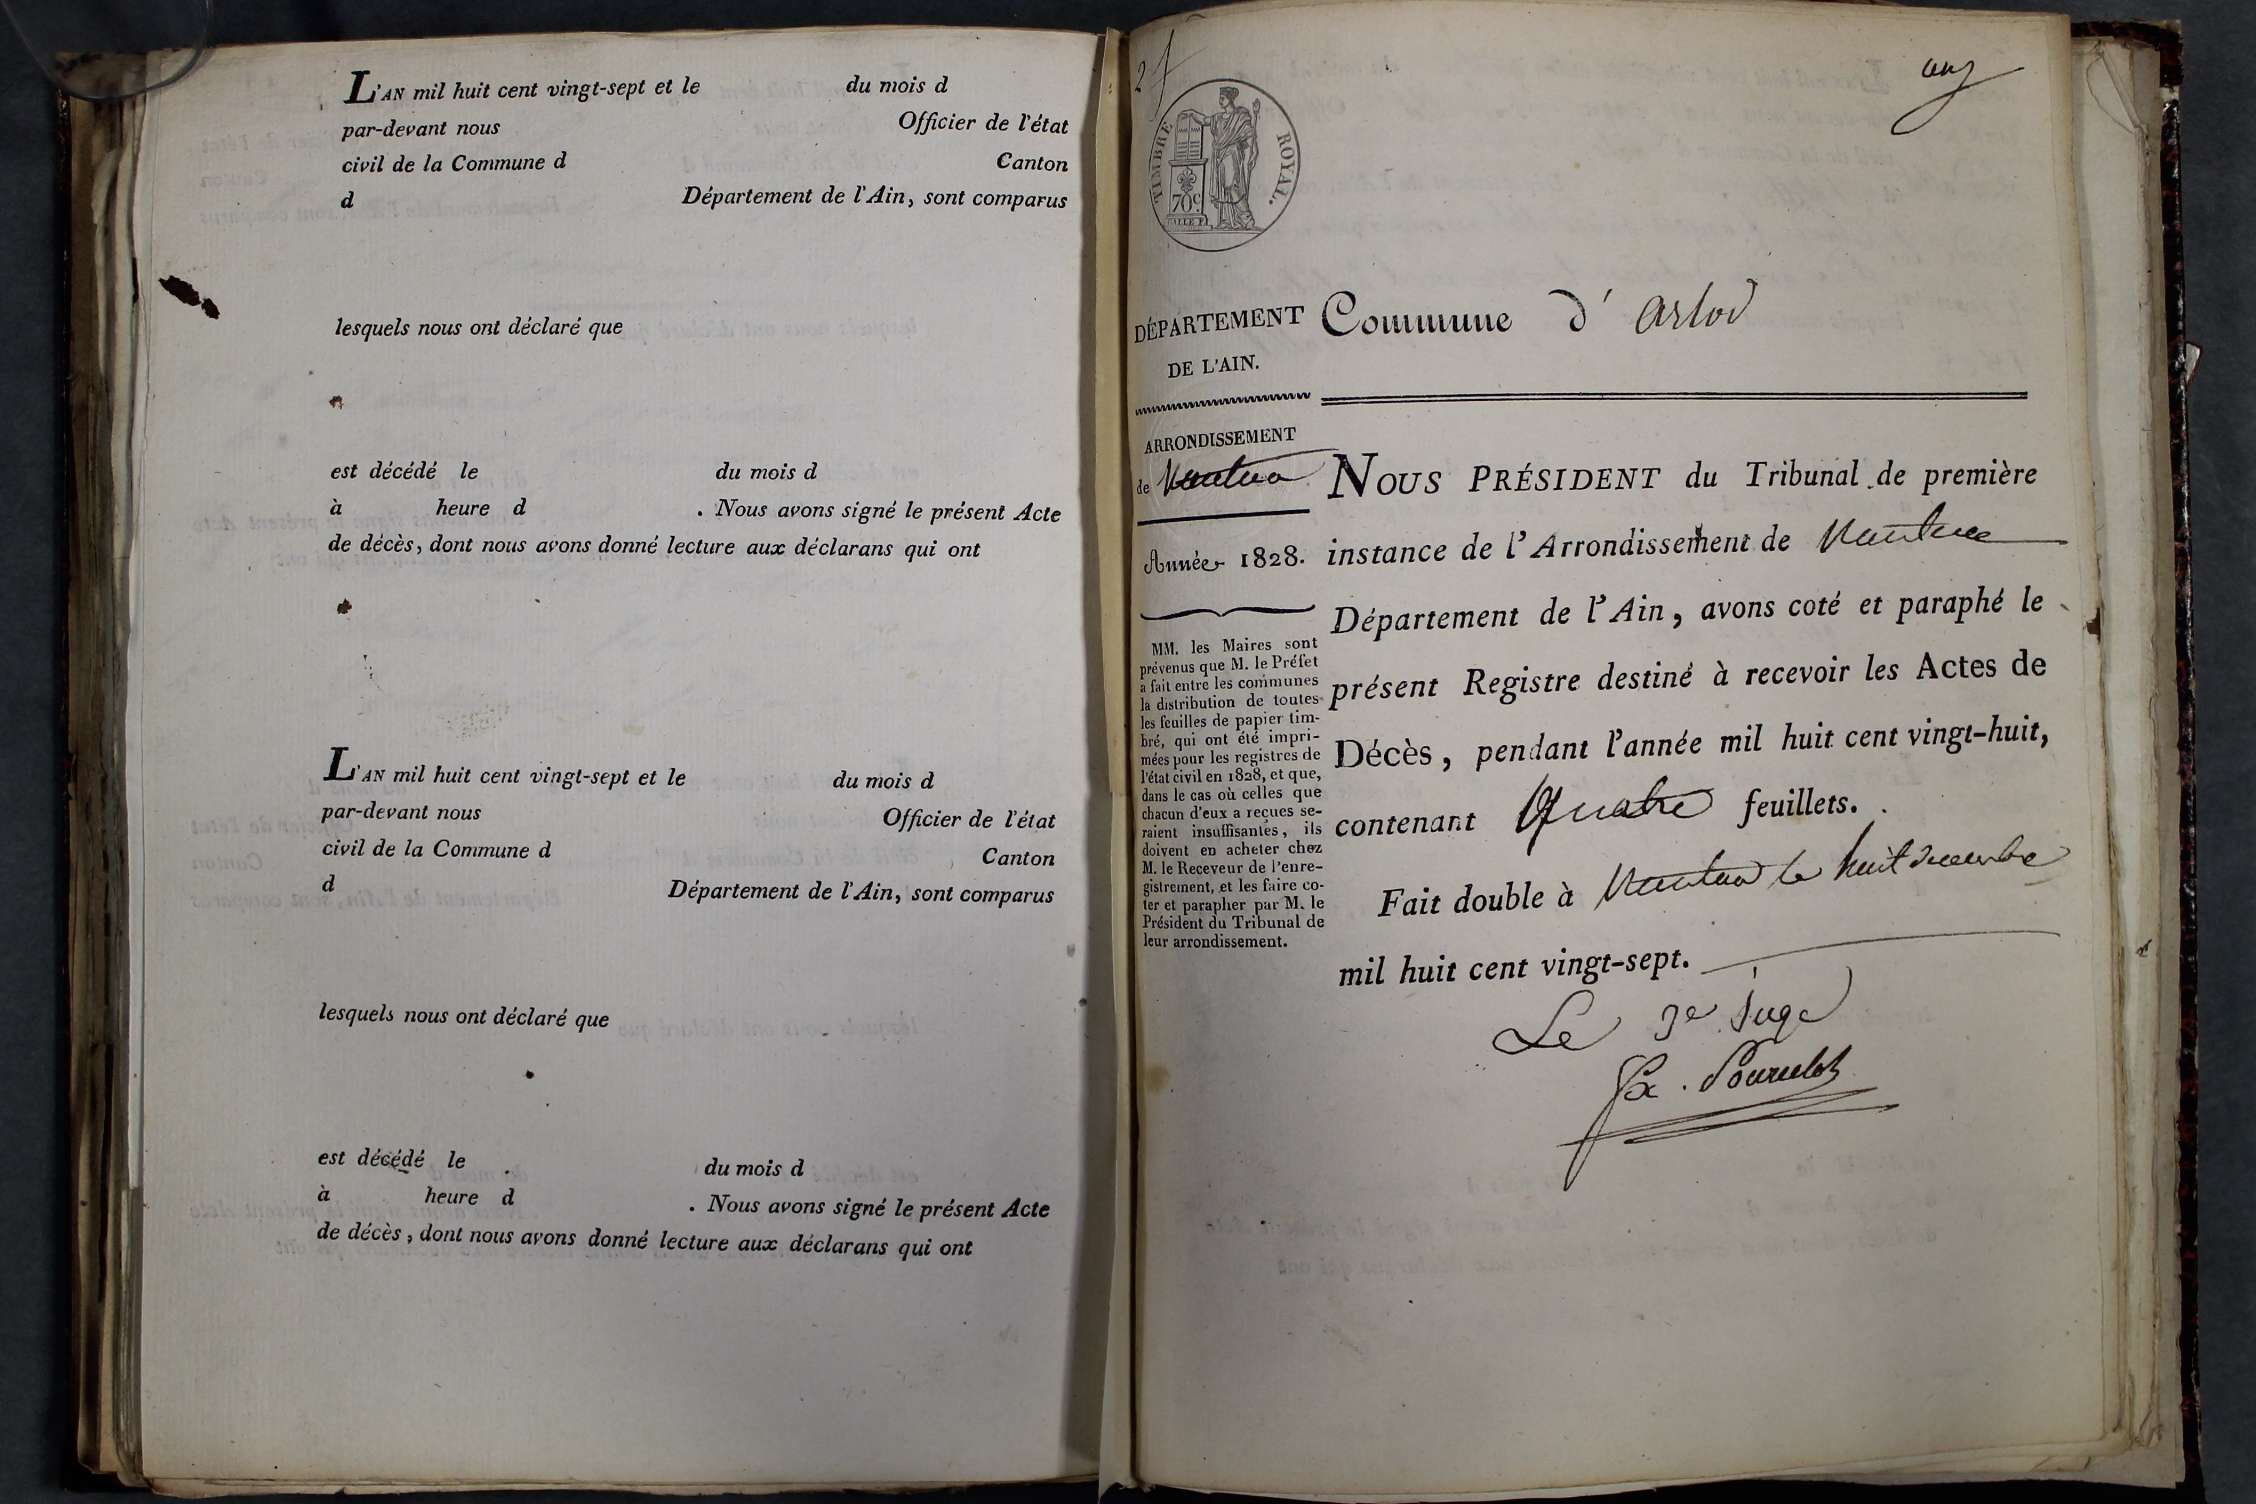 L'AN mil huit cent vingt-sept et le du mois d
par-devant nous Officier de l'état
civil de la Commune d Canton
d Département de l'Ain, sont comparus
lesquels nous ont déclaré que
est décédé le du mois d
à heure d . Nous avons signé le présent Acte
de décès, dont nous avons donné lecture aux déclarans qui ont
L'AN mil huit cent vingt-sept et le du mois d
par-devant nous Officier de l'état
civil de la Commune d Canton
d Département de l'Ain, sont comparus
lesquels nous ont déclaré que
est décédé le du mois d
à heure d . Nous avons signé le présent Acte
de décès, dont nous avons donné lecture aux déclarans qui ont
TIMBRE ROYAL.
70c
DÉPARTEMENT
DE L'AIN.
ARRONDISSEMENT
de Nantua
Année 1828.
MM. les Maires sont
prévenus que M. le Préfet
a fait entre les communes
la distribution de toutes
les feuilles de papier tim-
bré, qui ont été impri-
mées pour les registres de
l'état civil en 1828, et que,
dans le cas où celles que
chacun d'eux a reçues se-
raient insuffisantes, ils
doivent en acheter chez
M. le Receveur de l'enre-
gistrement, et les faire co-
ter et parapher par M. le
Président du Tribunal de
leur arrondissement.
Commune d'arlod
NOUS PRÉSIDENT du Tribunal de première
instance de l'Arrondissement de Nantua
Département de l'Ain, avons coté et paraphé le
présent Registre destiné à recevoir les Actes de
Décès, pendant l'année mil huit cent vingt-huit,
contenant Quatre feuillets.
Fait double à Nantua le huit decembre
mil huit cent vingt-sept.
Le 3e Juge